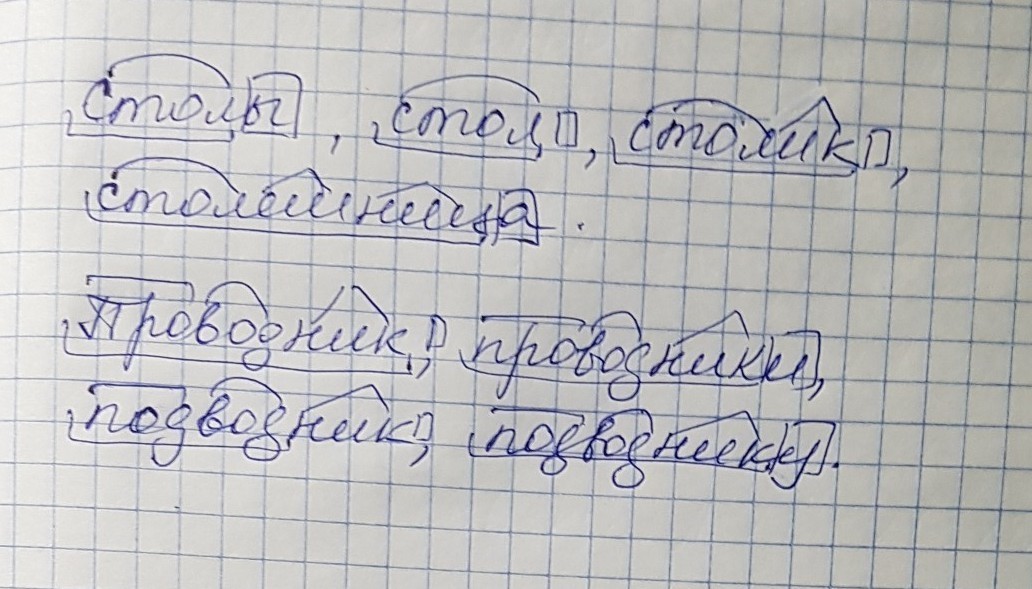 столы, стол, столик,
столешница.
Проводник, проводники,
подводник, подводнику.